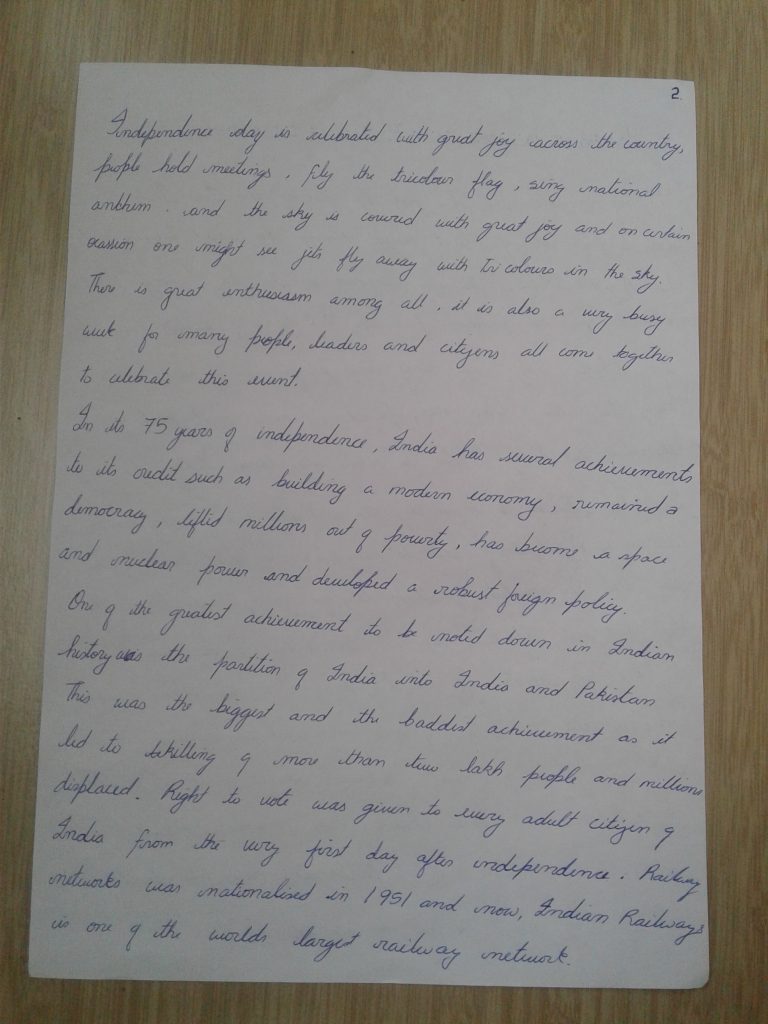 2
Independence day is celebrated with great joy across the country,
people hold meetings, fly the tricolour flag, sing national
anthem. and the sky is covered with great joy and on certain
ocassion one might see jets fly away with tricolours in the sky.
There is great enthusiasm among all, it is also a very busy
week for many people, leaders and citizens all come together
to celebrate this event.
In its 75 years of independence, India has several achievements
to its credit such as building a modern economy, remained a
democracy, lifted millions out of poverty, has become a space
and nuclear power and developed a robust foreign policy.
One of the greatest achievement to be noted down in Indian
history was the partition of India into India and Pakistan
This was the biggest and the baddest achievement as it
led to killing of more than two lakh people and millions
displaced. Right to vote was given to every adult citizen of
India from the very first day after independence. Railway
networks was nationalised in 1951 and now, Indian Railways
is one of the worlds largest railway network.